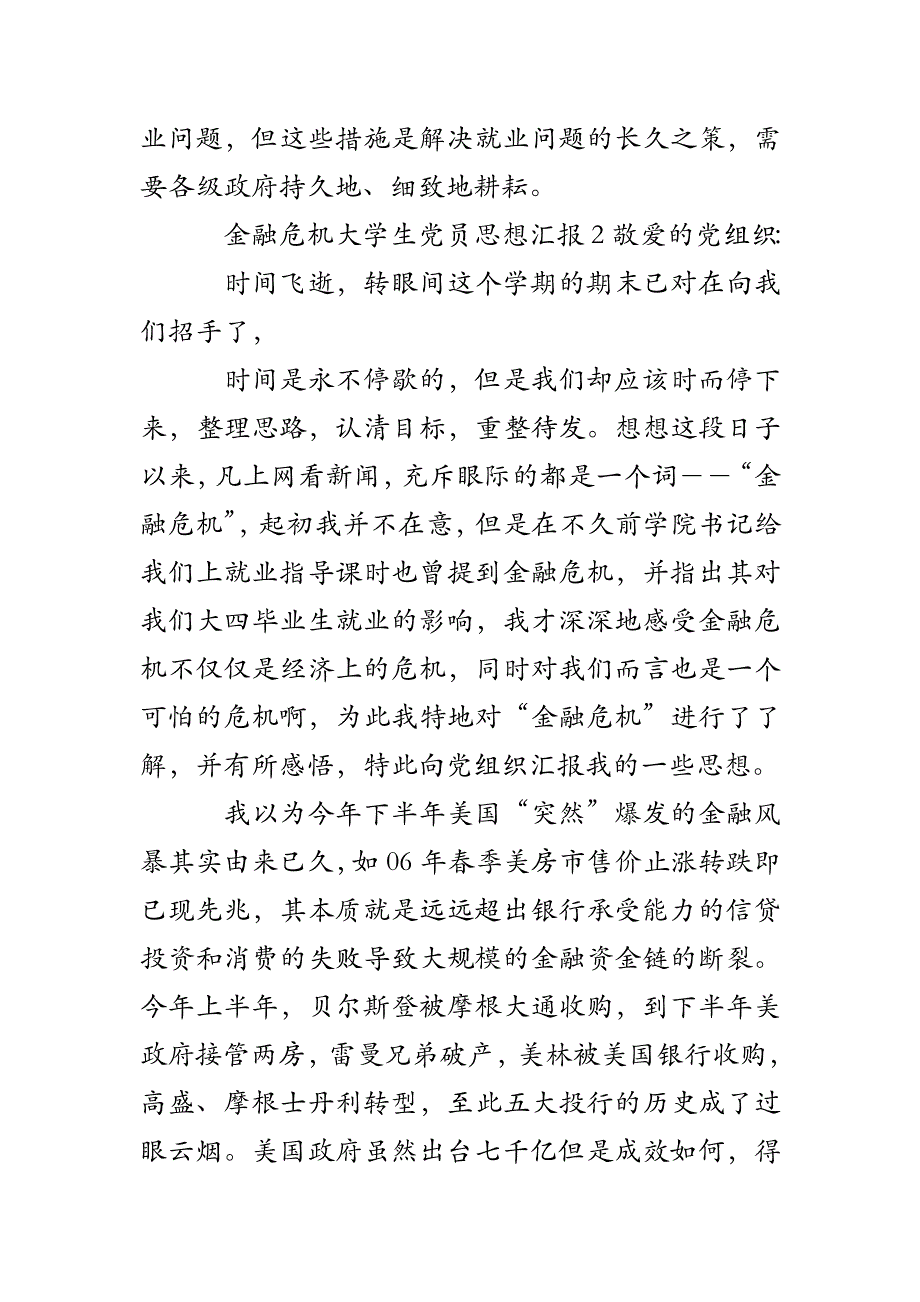 业问题，但这些措施是解决就业问题的长久之策，需
要各级政府持久地、细致地耕耘。
金融危机大学生党员思想汇报2敬爱的党组织:
时间飞逝，转眼间这个学期的期末已对在向我
们招手了，
时间是永不停歇的，但是我们却应该时而停下
来，整理思路，认清目标，重整待发。想想这段日子
以来，凡上网看新闻，充斥眼际的都是一个词－－“金
融危机”，起初我并不在意，但是在不久前学院书记给
我们上就业指导课时也曾提到金融危机，并指出其对
我们大四毕业生就业的影响，我才深深地感受金融危
机不仅仅是经济上的危机，同时对我们而言也是一个
可怕的危机啊，为此我特地对“金融危机”进行了了
解，并有所感悟，特此向党组织汇报我的一些思想。
我以为今年下半年美国“突然”爆发的金融风
暴其实由来已久，如06年春季美房市售价止涨转跌即
已现先兆，其本质就是远远超出银行承受能力的信贷
投资和消费的失败导致大规模的金融资金链的断裂。
今年上半年，贝尔斯登被摩根大通收购，到下半年美
政府接管两房，雷曼兄弟破产，美林被美国银行收购，
高盛、摩根士丹利转型，至此五大投行的历史成了过
眼云烟。美国政府虽然出台七千亿但是成效如何，得